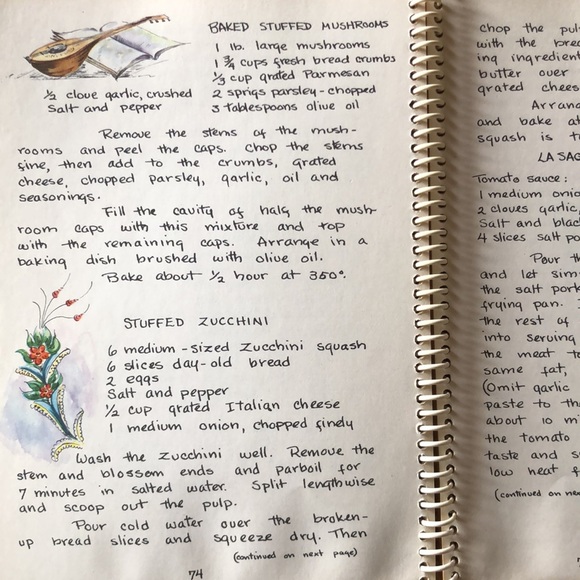 BAKED STUFFED MUSHROOMS
1 lb. large mushrooms
1 3/4 cups fresh bread crumbs
1/3 cup grated Parmesan
2 sprigs parsley-chopped
3 tablespoons olive oil
1/2 clove garlic, crushed
Salt and pepper
Remove the stems of the mush-
rooms and peel the caps. Chop the stems
fine, then add to the crumbs, grated
cheese, chopped parsley, garlic, oil and
seasonings.
Fill the cavity of half the mush-
room caps with this mixture and top
with the remaining caps. Arrange in a
baking dish brushed with olive oil.
Bake about 1/2 hour at 350°.
STUFFED ZUCCHINI
6 medium-sized Zucchini squash
6 slices day-old bread
2 eggs
Salt and pepper
1/2 cup grated Italian cheese
1 medium onion, chopped findy
Wash the Zucchini well. Remove the
stem and blossom ends and parboil for
7 minutes in salted water. Split lengthwise
and scoop out the pulp.
Pour cold water over the broken-
up bread slices and squeeze dry. Then
(continued on next page)
74
chop the pul
with the brea
ing ingredient
butter over
grated chees
Arran
and bake at
squash is t
LA SAG
Tomato sauce:
1 medium onio
2 cloves garlic,
Salt and blac
4 slices salt po
Pour th
and let sim
the salt pork
frying pan.
the rest of
into serving
the meat to
same fat,
(Omit garlic
paste to th
about 10 mi
the tomato
taste and s
low heat f
(continued on nex